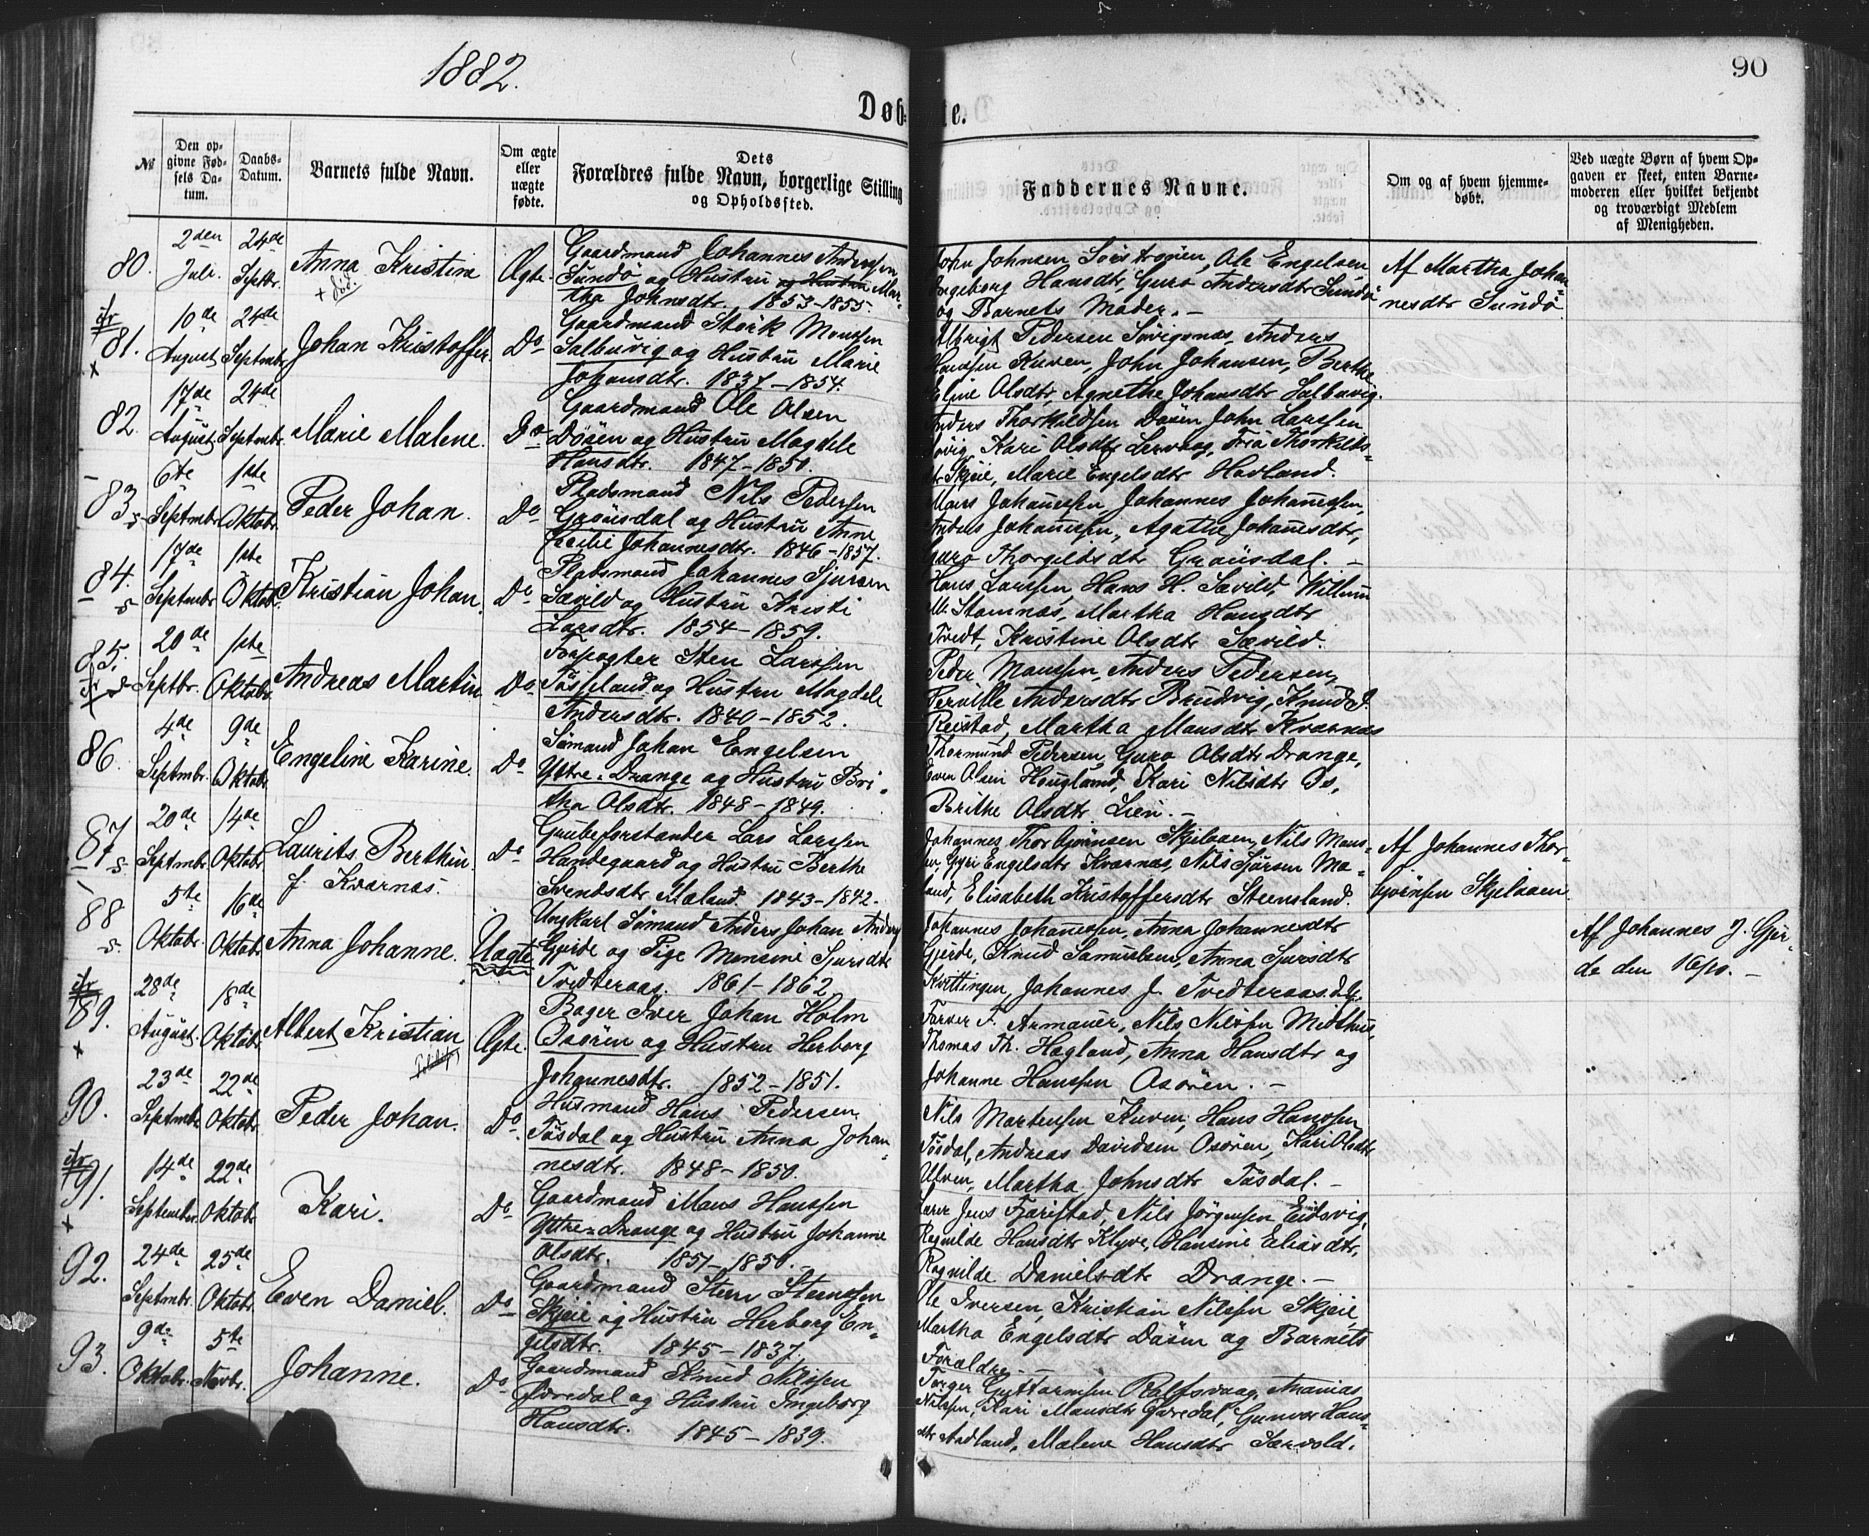 1882.
90
Døb- te.
№
Den opgivne Fødsels Datum.
Daabs-Datum.
Barnets fulde Navn.
Om ægte eller uægte fødte.
Dets
Forældres fulde Navn, borgerlige Stilling
og Opholdssted.
Faddernes Navne.
Om og af hvem hjemmedøbt.
Ved uægte Børn af hvem Opgaven er skeet, enten Barnemoderen eller hvilket bekjendt og troværdigt Medlem af Menigheden.
80. 2den Juli. 24de Septbr. Anna Kristine Ægte
Gaardmand Johannes Andersen
Sundø og Hustru og Hustru Mar-
tha Johnsdtr. 1853-1855.
John Johnsen, Ole Engelsen
Ingeborg Hansdtr, Guro Andersdtr Sundø
og Barnets Moder. -
Af Martha Johan
nesdtr Sundø
81. 10de August 24de Septmbr. Johan Kristoffer Do
Gaardmand Størk Monsen
Salbuvig og Hustru Marie
Johansdtr. 1837-1854.
Albrigt Pedersen Søvigsnæs, Anders
Hansen Kuven, John Johansen, Berthe
Eline Olsdtr, Agnethe Johansdtr Salbuvig.
82. 17de August 24de Septmbr. Marie Malene. Do
Gaardmand Ole Olsen
Døsen og Hustru Magdele
Hansdtr. 1847-1850.
Anders Thorkildsen Døsen John Larssen
Søvig, Kari Olsdtr Lervaag, Thorkilds-
dtr Skjeie, Marie Engelsdtr Havland.
83. 6te Septmbr. 1ste Oktobr. Peder Johan. Do
Pladsmand Nils Pedersen
og Hustru Anne
Cecilie Johannesdtr. 1846-1857.
Mons Johannessen, Johannes Johannessen,
Anders Johannessen, Agathe Johannesdtr,
Guro Thorgilsdtr -
84. 17de Septembr 1ste Oktob. Kristian Johan. Do
Pladsmand Johannes Sjursen
Sævild og Hustru Kristi
Larsdtr. 1854-1859.
Hans Larssen, Hans H. Sævild, Willum
M. Stamnæs, Martha Hansdtr
Tvedt, Kristine Olsdtr Sævild.
85. 20de Septbr. 1ste Oktobr. Andreas Martin. Do
Forpagter Sten Larssen
Tøsseland og Hustru Magdele
Andersdtr. 1840-1852.
Peder Monssen, Anders Pedersen,
Pernille Andersdtr Brudvig, Knud J.
Reistad, Martha Monsdtr Kvarnæs
86. 4de Septmbr. 9de Oktobr. Engeline Karine. Do
Sømand Johan Engelsen
Yttre-Drange og Hustru Bri-
tha Olsdtr. 1848-1849.
Thormund Pedersen, Guro Olsdtr Drange,
Sven Olsen Hougland, Kari Nilsdtr Os,
Brithe Olsdtr Lien. -
87. 20de Septmbr. 14de Oktobr. Laurits Berthin
f. Kvarnæs. Do
Grubeforstander Lars Larssen
Handegaard og Hustru Berthe
Svendsdtr Mæland. 1843-1842.
Johannes Thorbjørnsen Skjelaaen, Nils Mons-
sen, Gyri Engelsdtr Kvarnæs, Nils Sjursen Mæ-
land, Elisabeth Kristoffersdtr Steensland.
Af Johannes Thor-
bjørnsen Skjelaaen.
88 5te Oktobr. 16de Oktobr. Anna Johanne. Uægte
Ungkarl Sømand Anders Johan Anders
Gjerde og Pige Monsine Sjursdtr
Tvedteraas. 1861-1862
Johannes Johannessen, Anna Johannesdtr
Gjerde, Knud Samuelsen, Anna Sjursdtr
Kvittingen, Johannes J. Tvedteraas.
Af Johannes J. Gjer-
de den 16/10. -
89. 28de August. 18de Oktobr. Albert Kristian Ægte.
Bager Iver Johan Holm
Osøren og Hustru Herborg
Johannesdtr. 1852-1851.
Farver F. Armauer, Nils Nilsen Midthus,
Thomas Th. Hagland, Anna Hansdtr og
Johanne Hanssen Osøren. -
90. 23de Septembr 22de Oktobr. Peder Johan. Do
Husmand Hans Pedersen
Tøsdal og Hustru Anna Johan-
nesdtr. 1848-1850.
Nils Martensen Kuven, Hans Hanssen
Tøsdal, Andreas Davidsen Osøren, Kari Olsdtr
Ulven, Martha Johnsdtr Tøsdal. -
91. 14de Septembr. 22de Oktobr Kari. Do
Gaardmand Mons Hanssen
Yttre-Drange og Hustru Johanne
Olsdtr. 1851-1850.
Jens Fjærestad, Nils Jørgensen Eidsvig,
Regnilde Hansdtr Klyve, Hansine Eliasdtr,
Ragnilde Danielsdtr Drange. -
92. 24de Septmbr. 25de Oktobr. Even Daniel. Do
Gaardmand Sten Stenssen
Skjeie og Hustru Herborg En-
gelsdtr. 1845-1837.
Ole Iversen, Kristian Nilssen Skjeie,
Martha Engelsdtr Døsen og Barnets
Forældre.
93. 9de Oktobr. 5te Novbr. Johanne. Do
Gaardmand Knud Nilssen
Øvredal og Hustru Ingeborg
Hansdtr. 1845-1839.
Torger Guttormsen Rolfsvaag, Ananias
Nilssen, Kari Monsdtr Øvredal, Gunvor Hans-
dtr Aadland, Malene Hansdtr Særvold.